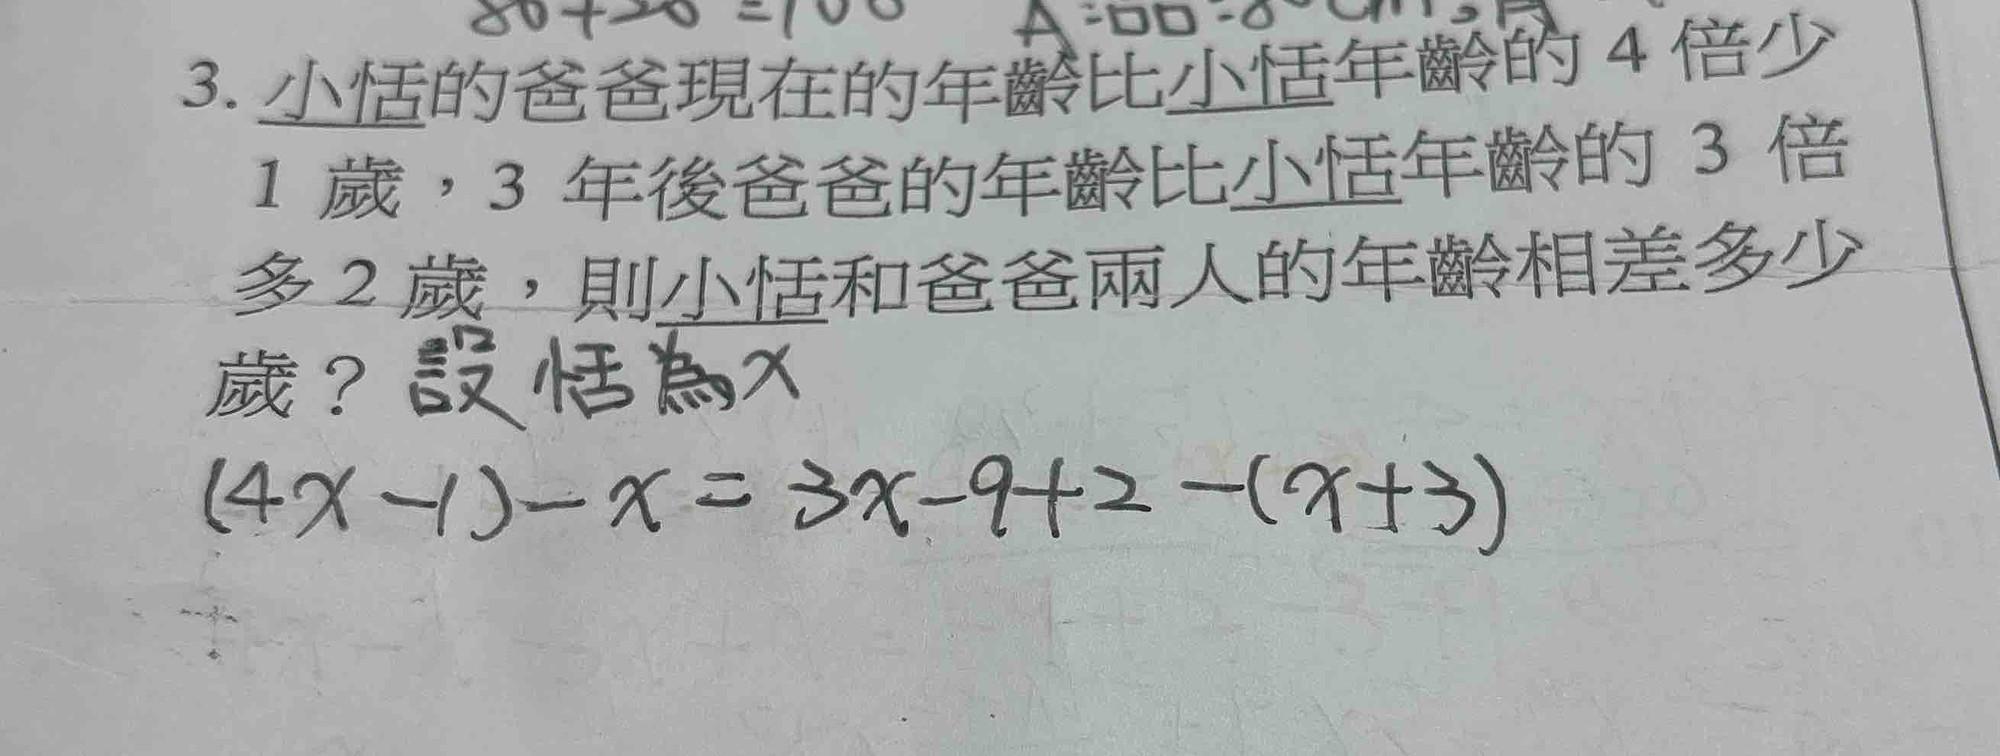 80+20=100
3. 小恬的爸爸現在的年齡比小恬年齡的 4 倍少
1 歲，3 年後爸爸的年齡比小恬年齡的 3 倍
多 2 歲，則小恬和爸爸兩人的年齡相差多少
歲？設恬為x
(4x-1)-x=3x-9+2-(x+3)